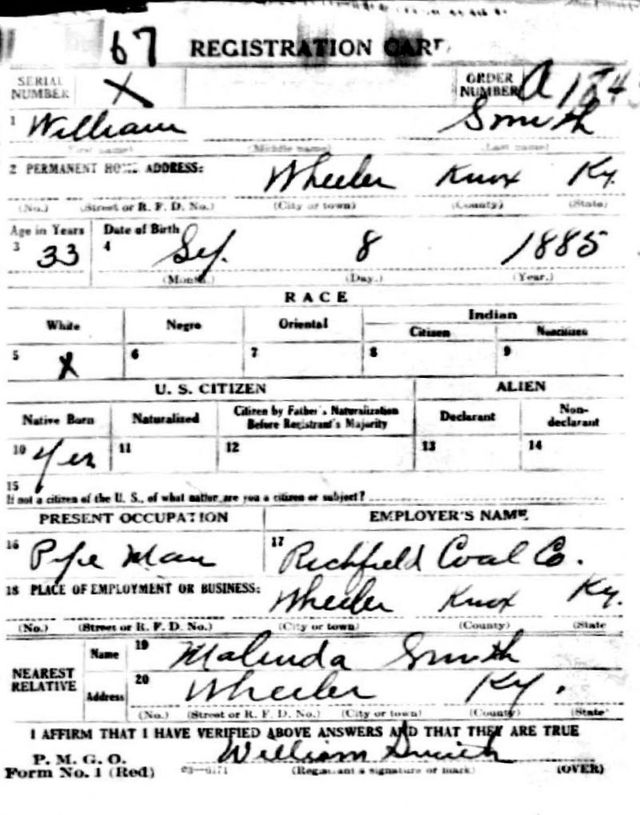 67 REGISTRATION CARD
SERIAL NUMBER X ORDER NUMBER A
1 William Smith
(First name) (Middle name) (Last name)
2 PERMANENT HOME ADDRESS: Wheeler Knox Ky.
(No.) (Street or R. F. D. No.) (City or town) (County) (State)
Age in Years Date of Birth
3 33 4 Sep. 8 1885
(Month.) (Day.) (Year.)
RACE
White Negro Oriental Indian
Citizen Noncitizen
5 X 6 7 8 9
U. S. CITIZEN ALIEN
Native Born Naturalized Citizen by Father's Naturalization Before Registrant's Majority Declarant Non-declarant
10 Yes 11 12 13 14
15
If not a citizen of the U. S., of what nation are you a citizen or subject?
PRESENT OCCUPATION EMPLOYER'S NAME
16 Pipe Man 17 Richfield Coal Co.
18 PLACE OF EMPLOYMENT OR BUSINESS: Wheeler Knox Ky.
(No.) (Street or R. F. D. No.) (City or town) (County) (State
NEAREST RELATIVE Name 19 Malinda Smith
Address 20 Wheeler Ky.
(No.) (Street or R. F. D. No.) (City or town) (County) (State)
I AFFIRM THAT I HAVE VERIFIED ABOVE ANSWERS AND THAT THEY ARE TRUE
P. M. G. O. William Smith
Form No. 1 (Red) (Registrant's signature or mark) (OVER)